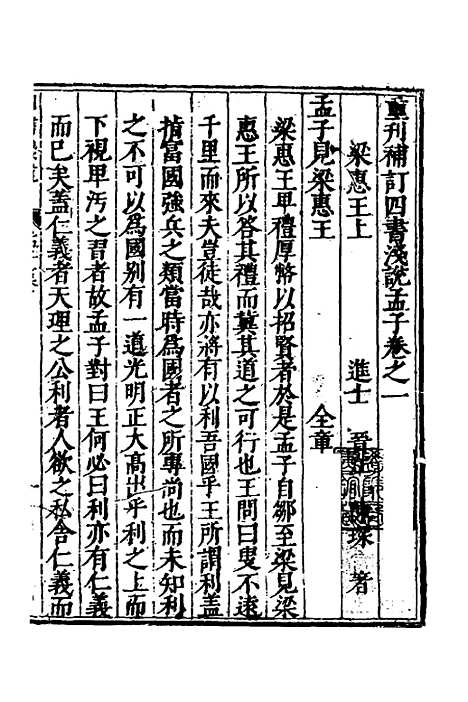 重刊補訂四書淺說孟子卷之一
梁惠王上　進士　晉江　陳琛　著
孟子見梁惠王　全章
梁惠王甲禮厚幣以招賢者於是孟子自鄒至梁見梁
惠王所以答其禮而冀其道之可行也王問曰叟不遠
千里而來夫豈徒哉亦將有以利吾國乎王所謂利蓋
指富國強兵之類當時為國者之所專尚也而未知利
之不可以為國別有一道光明正大高出乎利之上而
下視甲汚之習者故孟子對曰王何必曰利亦有仁義
而已矣蓋仁義者天理之公利者人欲之私舍仁義而